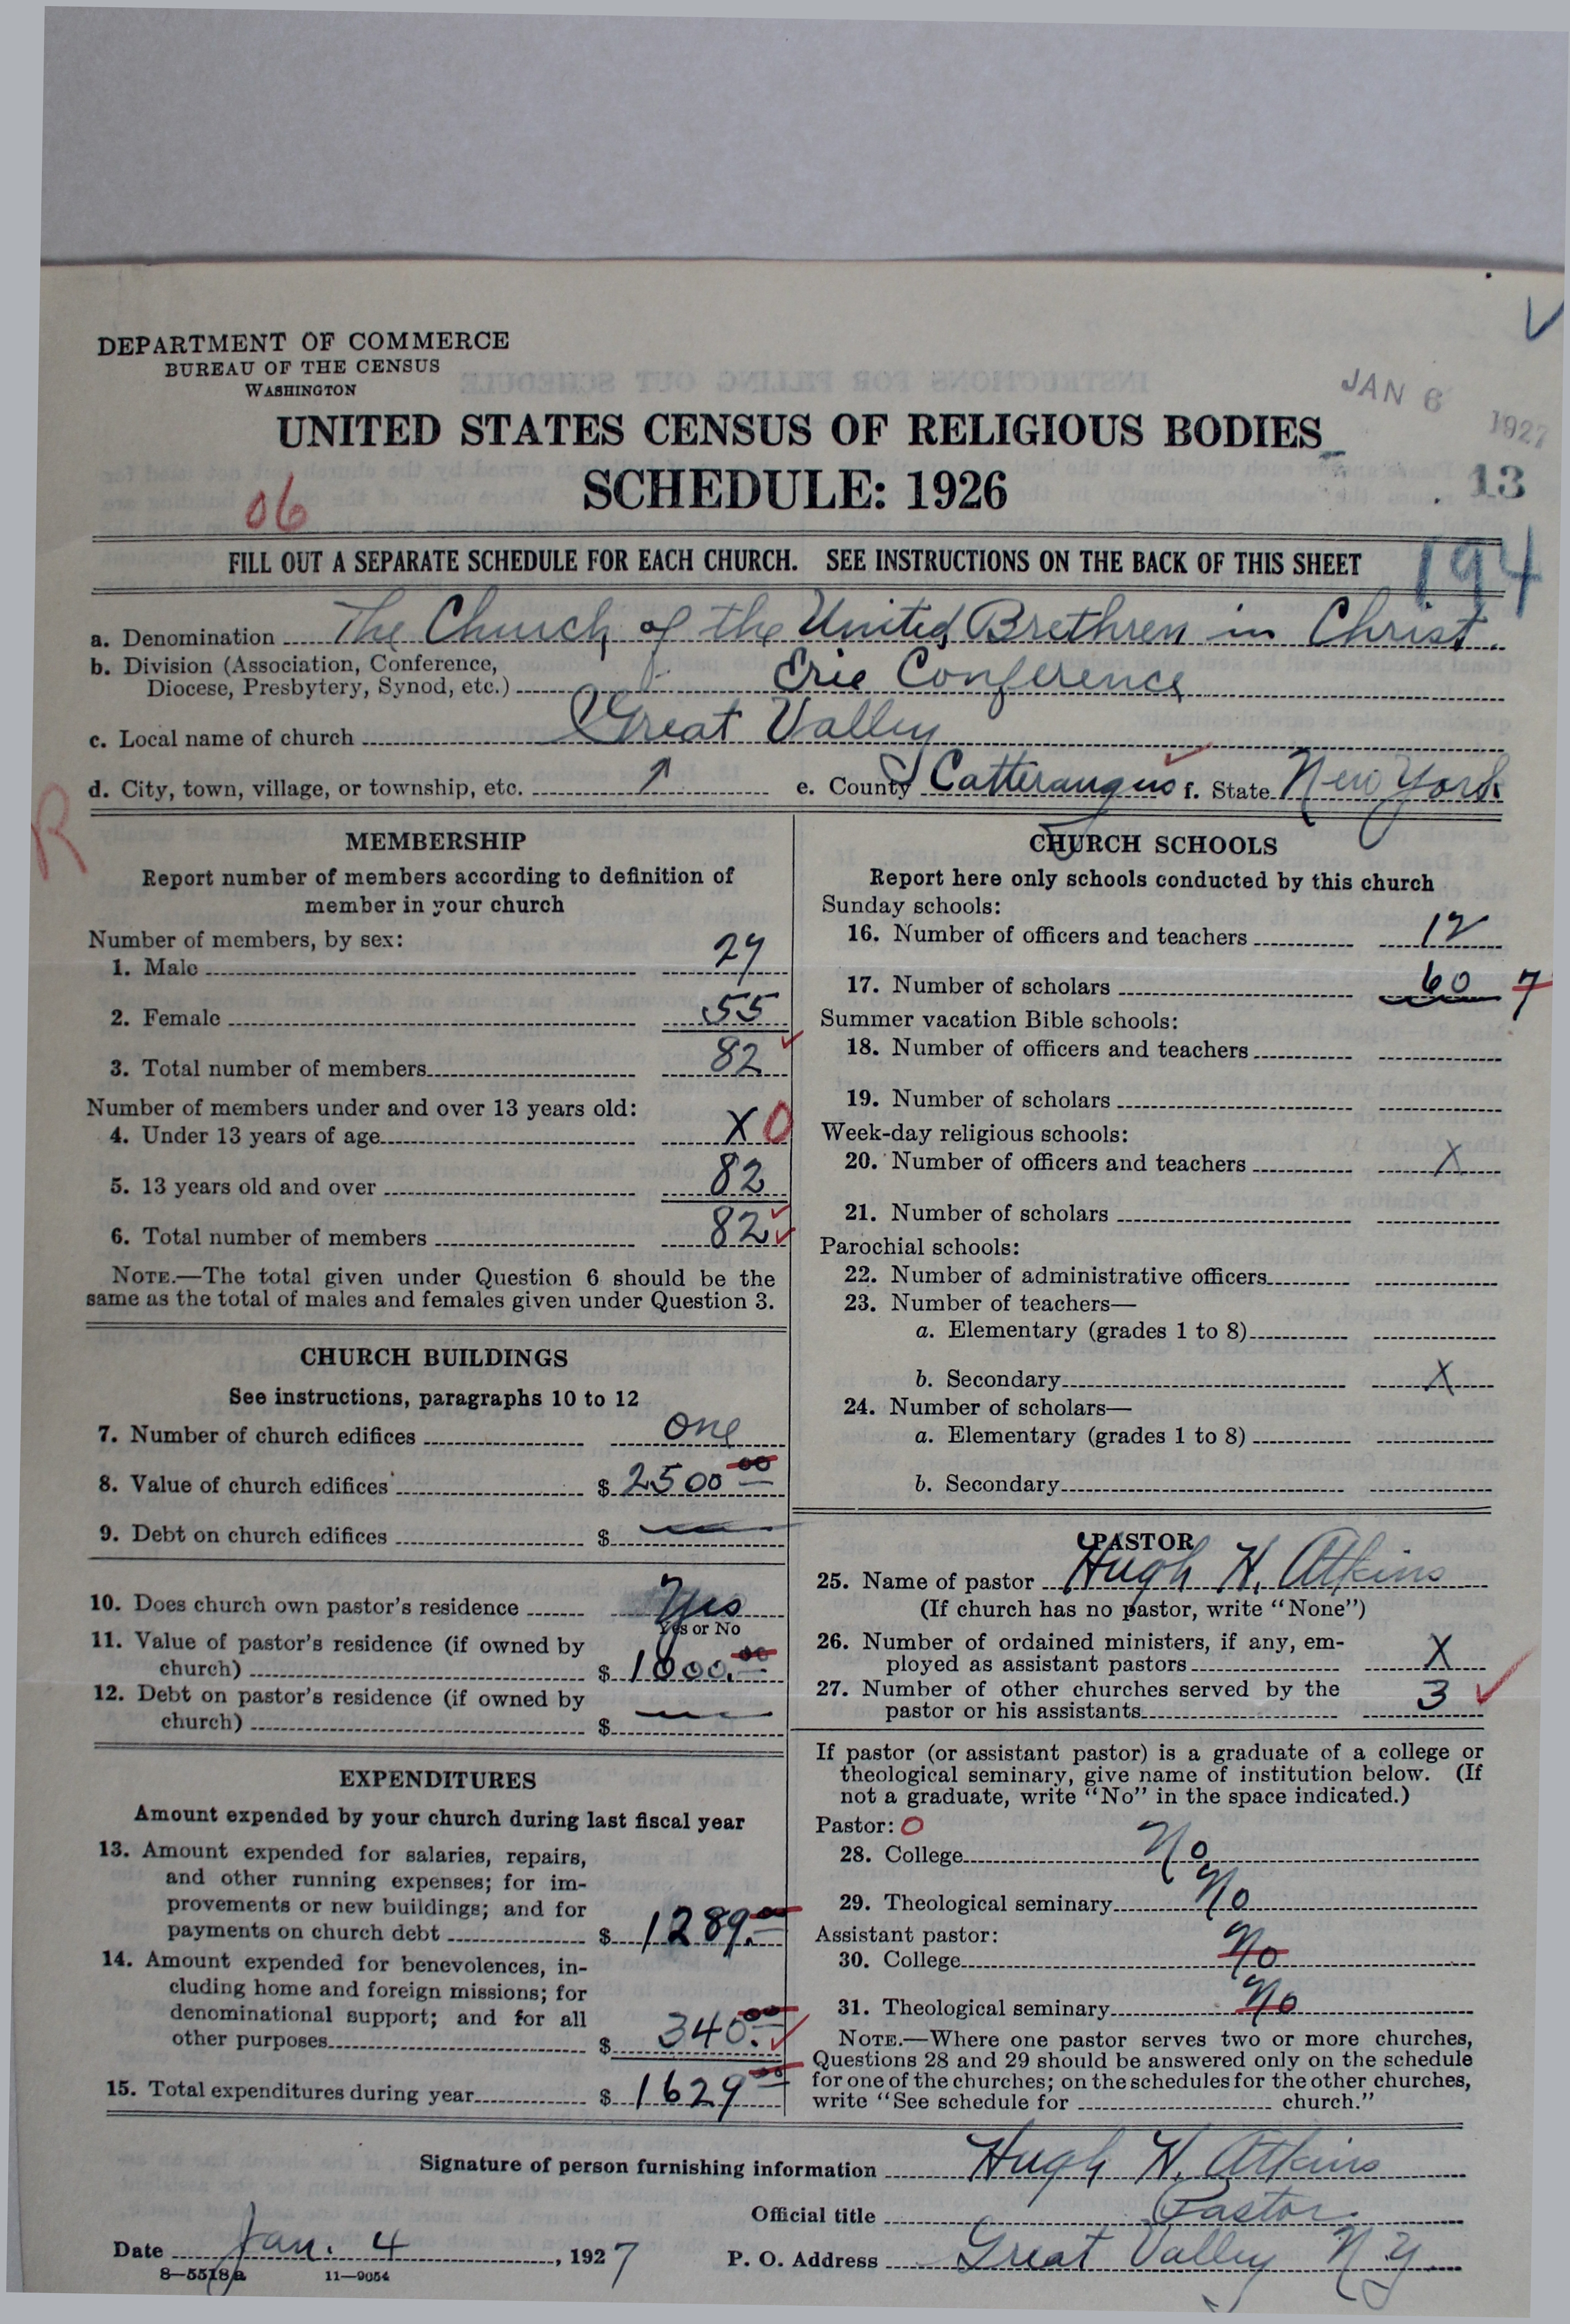 DEPARTMENT OF COMMERCE
BUREAU OF THE CENSUS
WASHINGTON
JAN 6 1927
UNITED STATES CENSUS OF RELIGIOUS BODIES
SCHEDULE: 1926
13
06
FILL OUT A SEPARATE SCHEDULE FOR EACH CHURCH. SEE INSTRUCTIONS ON THE BACK OF THIS SHEET
194
a. Denomination The Church of the United Brethren in Christ.
b. Division (Association, Conference,
Diocese, Presbytery, Synod, etc.) Erie Conference
c. Local name of church Great Valley
d. City, town, village, or township, etc. ↑ e. County Catteraugus f. State New York
R
MEMBERSHIP
Report number of members according to definition of
member in your church
Number of members, by sex:
1. Male 27
2. Female 55
3. Total number of members 82
Number of members under and over 13 years old:
4. Under 13 years of age X 0
5. 13 years old and over 82
6. Total number of members 82
NOTE.—The total given under Question 6 should be the
same as the total of males and females given under Question 3.
CHURCH BUILDINGS
See instructions, paragraphs 10 to 12
7. Number of church edifices one
8. Value of church edifices $ 2500 00
9. Debt on church edifices $ —
10. Does church own pastor's residence Yes
Yes or No
11. Value of pastor's residence (if owned by
church) $ 1000.00
12. Debt on pastor's residence (if owned by
church) $ —
EXPENDITURES
Amount expended by your church during last fiscal year
13. Amount expended for salaries, repairs,
and other running expenses; for im-
provements or new buildings; and for
payments on church debt $ 1289.00
14. Amount expended for benevolences, in-
cluding home and foreign missions; for
denominational support; and for all
other purposes $ 340.00
15. Total expenditures during year $ 1629 00
CHURCH SCHOOLS
Report here only schools conducted by this church
Sunday schools:
16. Number of officers and teachers 12
17. Number of scholars 60 7
Summer vacation Bible schools:
18. Number of officers and teachers
19. Number of scholars
Week-day religious schools:
20. Number of officers and teachers X
21. Number of scholars
Parochial schools:
22. Number of administrative officers
23. Number of teachers—
a. Elementary (grades 1 to 8)
b. Secondary X
24. Number of scholars—
a. Elementary (grades 1 to 8)
b. Secondary
PASTOR
25. Name of pastor Hugh H. Atkins
(If church has no pastor, write "None")
26. Number of ordained ministers, if any, em-
ployed as assistant pastors X
27. Number of other churches served by the
pastor or his assistants 3
If pastor (or assistant pastor) is a graduate of a college or
theological seminary, give name of institution below. (If
not a graduate, write "No" in the space indicated.)
Pastor: 0
28. College No
29. Theological seminary No
Assistant pastor:
30. College No
31. Theological seminary No
NOTE.—Where one pastor serves two or more churches,
Questions 28 and 29 should be answered only on the schedule
for one of the churches; on the schedules for the other churches,
write "See schedule for church."
Signature of person furnishing information Hugh H. Atkins
Official title Pastor
Date Jan. 4, 1927 P. O. Address Great Valley N.Y.
8—5518a 11—9054